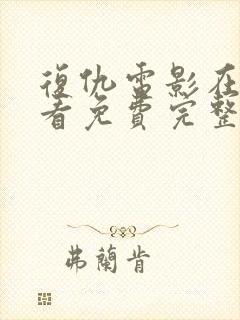 復仇雷影在
看免費完整
弗蘭肯